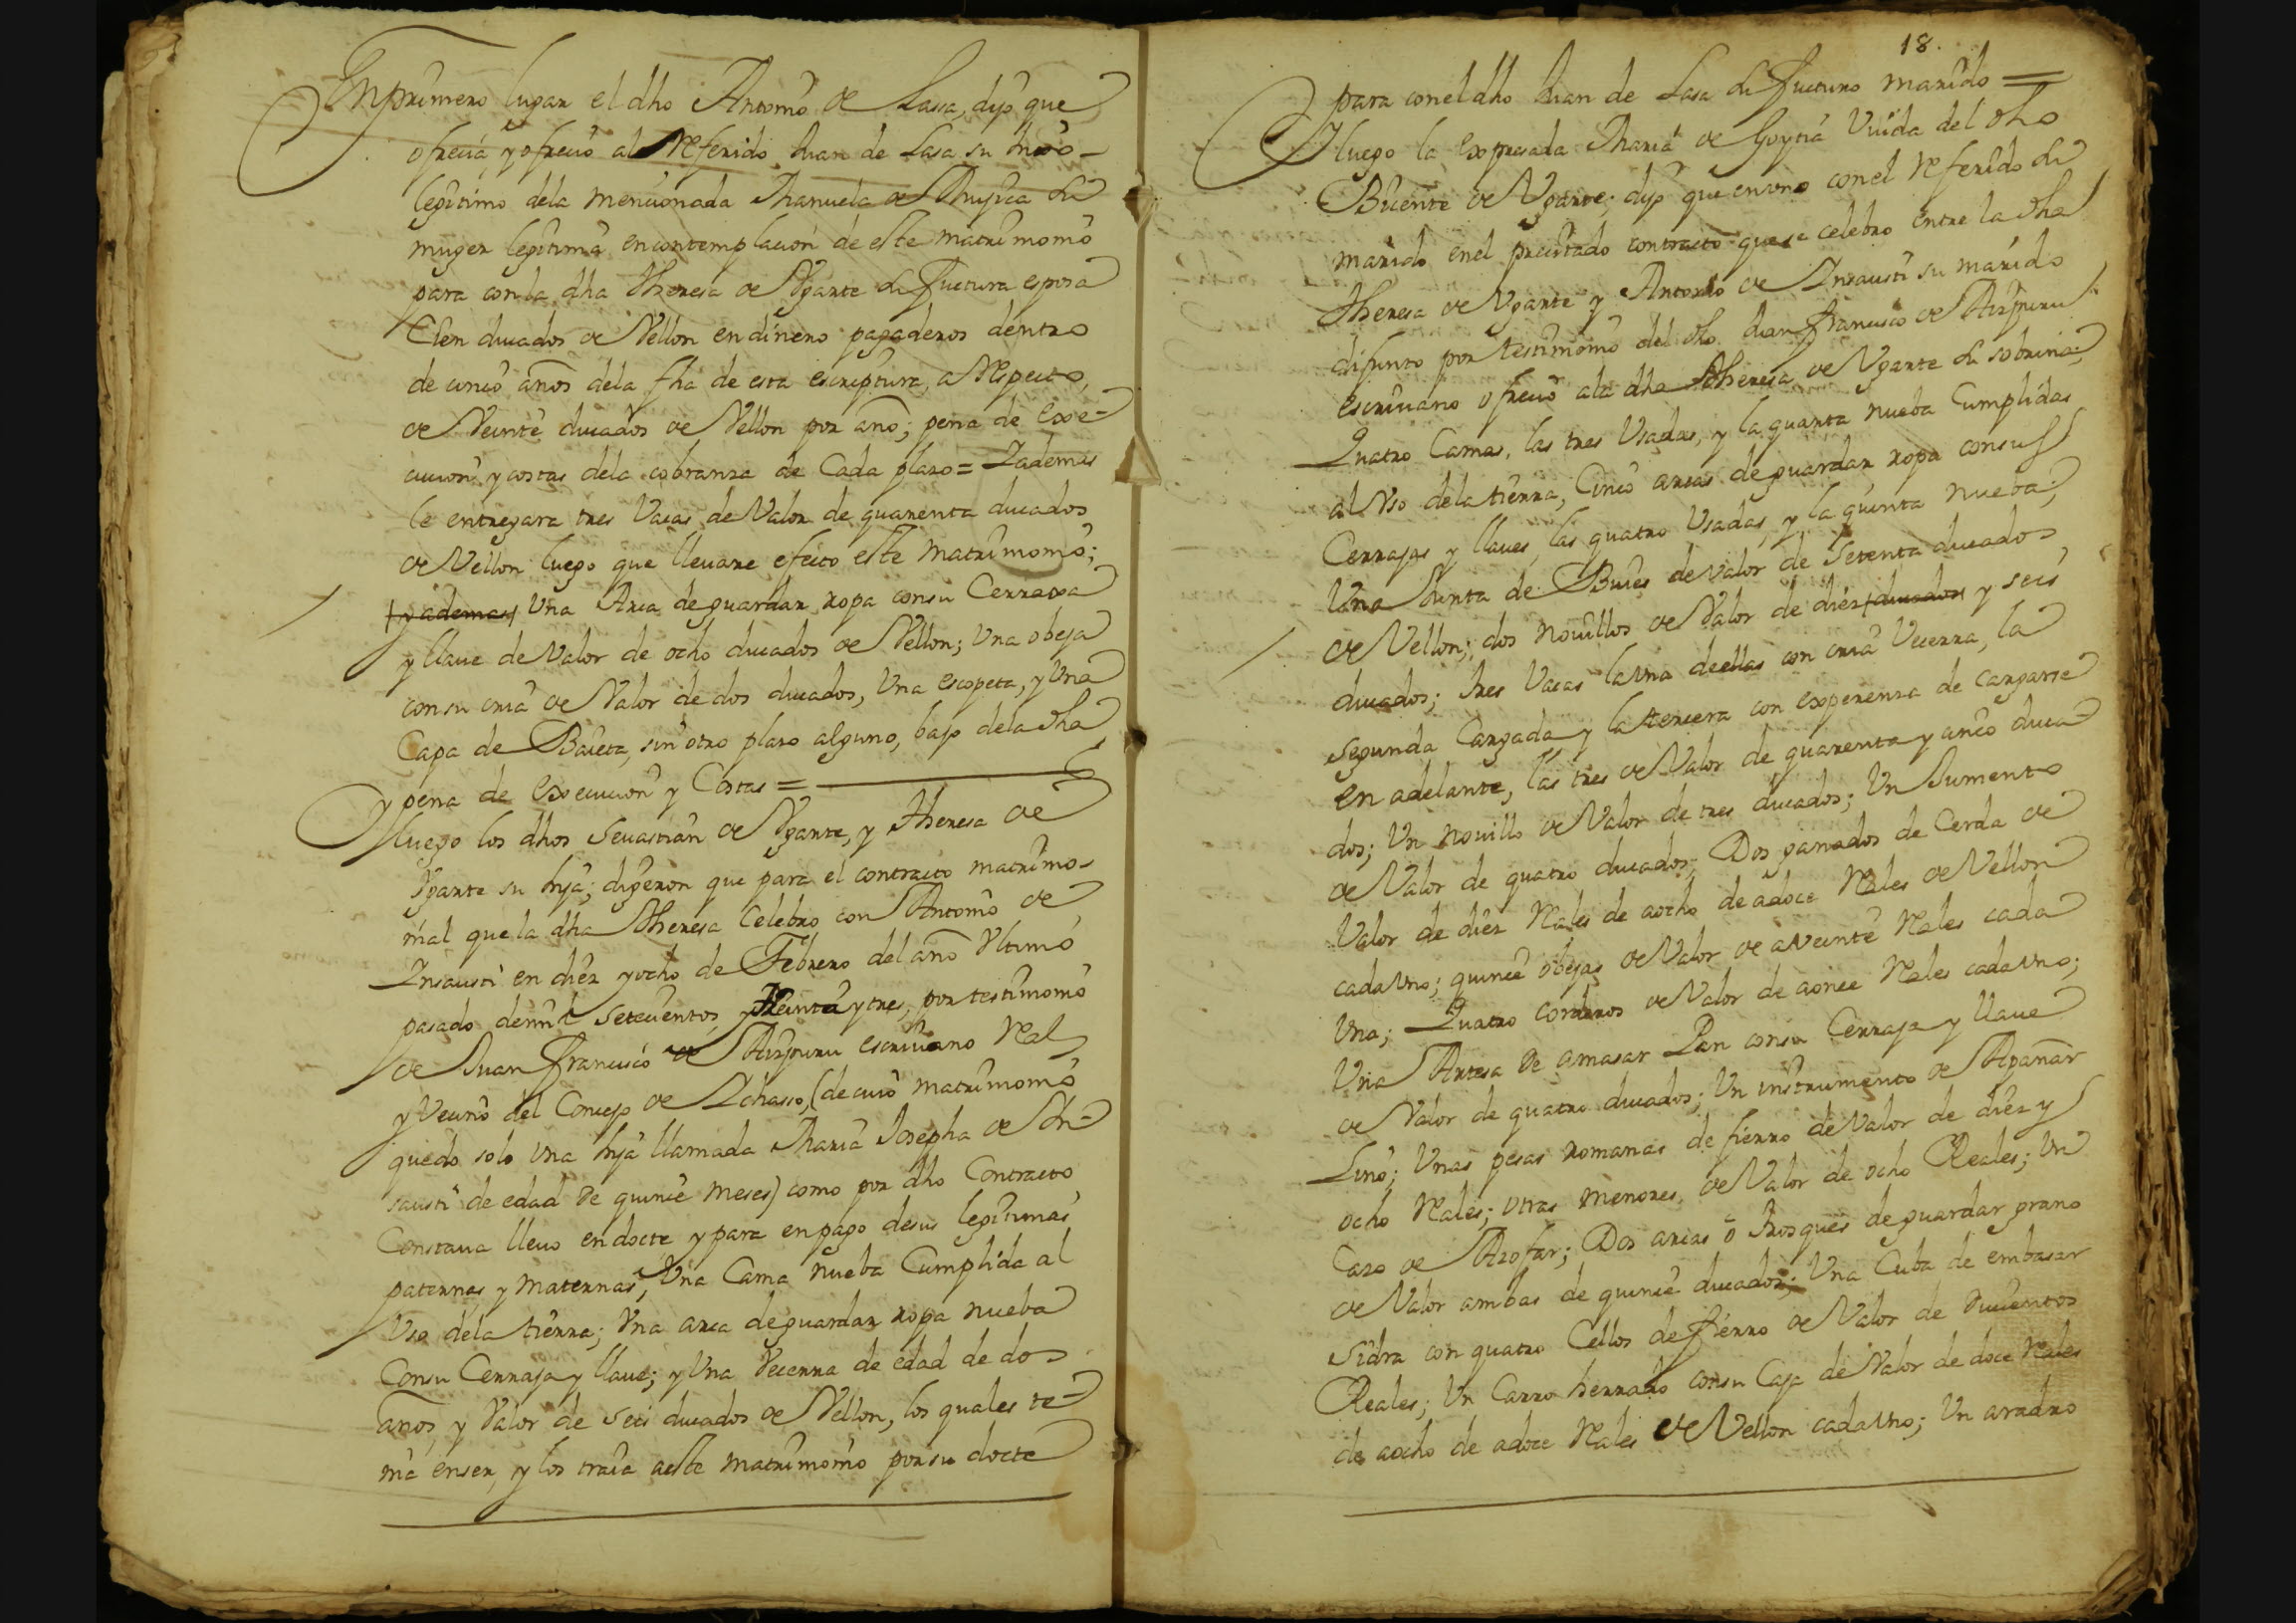 Enprimero lugar el dho Antonio de Lassa, dijo que
ofrecia, y ofrecio al Referido Juan de Lasa su hijo
legitimo dela mencionada Manuela de Mujica su
muger legitima en contemplacion de este matrimonio
para con la dha Theresa de Vgarte su fuctura esposa
Cien ducados de Vellon en dinero pagaderos dentro
de cinco años dela fha de esta escriptura, a Respecto,
de Veinte ducados de Vellon por año; pena de exe-
cucion y costas dela cobranza de Cada plazo = Iademas
le entregara tres Vacas de Valor de quarenta ducados
de Vellon luego que lleuare efecto este matrimonio;
y ademas Una Arca de guardar ropa consu Cerraxa
y llaue de Valor de ocho ducados de Vellon; Una obeja
consu cria de Valor de dos ducados, Una escopeta, y Una
Capa de Baieta, sin otro plazo alguno, bajo dela dha
y pena de execucion y Costas =
Iluego los dhos Seuastian de Vgarte, y Theresa de
Vgarte su hija; digeron que para el contracto matrimo-
nial que la dha Theresa Celebro con Antonio de
Insausti en diez y ocho de Febrero del año Vltimo
pasado demil setecientos y treinta y tres, por testimonio
de Juan Francisco de Aizpuru escriuano Real
y Vecino del Concejo de Ichasso, (de cuio matrimonio
quedo solo una hija llamada Maria Josepha de In-
sausti de edad de quince meses) como por dho Contracto
Constaua lleuo en docte y para en pago desus legitimas
paternas y maternas, Una Cama nueba Cumplida al
Vso dela tierra; Vna arca de guardar ropa nueba
Consu Cerraja y llaue; y Una Vecerra de edad de dos
años, y Valor de seis ducados de Vellon, los quales te-
nia enser, y los traia aeste matrimonio por su docte
18.
para con el dho Juan de Lasa su fucturo marido =
Iluego la expresada Maria de Goytia Viuda del dho
Bicente de Vgarte; dijo que en vno con el Referido su
marido en el precitado contracto que se celebro entre la dha
Theresa de Vgarte y Antonio de Insausti su marido
difunto por testimonio del dho Juan Francisco de Aizpuru
escriuano ofrecio ala dha Theresa de Vgarte su sobrina;
Quatro Camas, las tres Vsadas, y la quarta nueba Cumplidas
al Vso dela tierra; Cinco arcas de guardar ropa consus
Cerrajas y llaues, las quatro Vsadas, y la quinta nueba;
Una Junta de Bueies de valor de Setenta ducados
de Vellon; dos nouillos de Valor de diez ducados y seis
ducados; tres Vacas la vna de ellas con cria Vecerra, la
segunda Cargada y la tercera con experenza de cargarse
en adelante, las tres de Valor de quarenta y cinco duca
dos; Un nouillo de Valor de tres ducados; Un Jumento
de Valor de quatro ducados; Dos ganados de Cerda de
Valor de diez Reales de aocho de adoce Reales de Vellon
cada vno; quince obejas de Valor de aVeinte Reales cada
Vna; Quatro corderos de Valor de aonce Reales cada vno;
Una Artesa de amasar Pan consu Cerraja y llaue
de Valor de quatro ducados; Un instrumento de Apañar
Lino; Unas pesas romanas de fierro de Valor de diez y
ocho Reales; otras menores, de Valor de ocho Reales; Un
Cazo de Azofar; Dos arcas ó trosques de guardar grano
de Valor ambas de quince ducados; Una Cuba de embasar
Sidra con quatro Cellos de fierro de Valor de Ducientos
Reales; Un Carro herrado consu Caja de Valor de doce Reales
de aocho de adoce Reales de Vellon cada vno; Un aradro